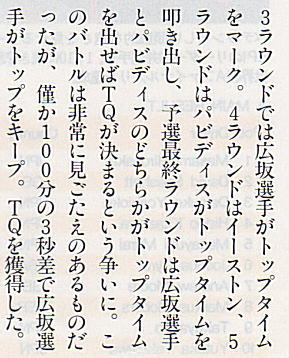 3ラウンドでは広坂選手がトップタイム
をマーク。4ラウンドはイーストン、5
ラウンドはパビディスがトップタイムを
叩き出し、予選最終ラウンドは広坂選手
とパビディスのどちらかがトップタイム
を出せばTQが決まるという争いに。こ
のバトルは非常に見ごたえのあるものだ
ったが、僅か100分の3秒差で広坂選
手がトップをキープ。TQを獲得した。